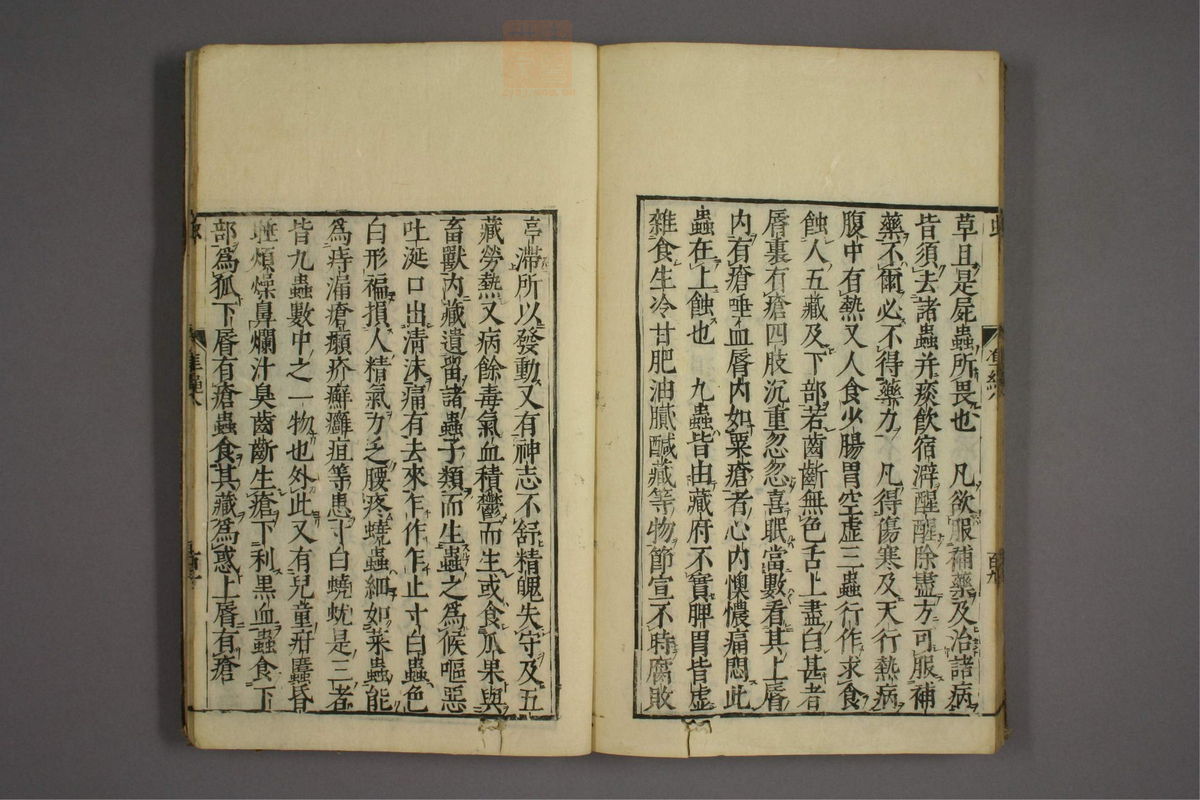 草且是屍蟲所畏也　凡欲服補藥及治諸病
皆須去諸蟲并痰飲宿澼醒醒除盡方可服補
藥不爾必不得藥力　凡得傷寒及天行熱病
腹中有熱又人食少腸胃空虛三蟲行作求食
蝕人五藏及下部若齒齗無色舌上盡白甚者
脣裏有瘡四肢沉重忽忽喜眠當數看其上脣
內有瘡唾血脣內如粟瘡者心內懊憹痛悶此
蟲在上蝕也　九蟲皆由藏府不實脾胃皆虛
雜食生冷甘肥油膩醎藏等物節宣不時腐敗
亭滯所以發動又有神志不舒精魄失守及五
藏勞熱又病餘毒氣血積鬱而生或食瓜果與
畜獸內藏遺留諸蟲子類而生蟲之爲候嘔惡
吐涎口出清沫痛有去來乍作乍止寸白蟲色
白形褊損人精氣力乏腰疼蟯蟲細如菜蟲能
爲痔漏瘡癩疥癬癰疽等患寸白蟯蚘是三者
皆九蟲數中之一物也外此又有兒童疳䘌昏
睡煩燥鼻爛汁臭齒齗生瘡下利黑血蟲食下
部爲狐下脣有瘡蟲食其藏爲惑上脣有瘡